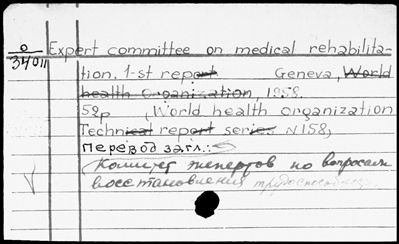 0 Expert committee on medical rehabilita-
34011 tion. 1-st report Geneva, World
health organization, 1958.
52p (World health organization
Technical report series N158)
Перевод загл.:
(Комитет экспертов по вопросам
восстановления трудоспособности